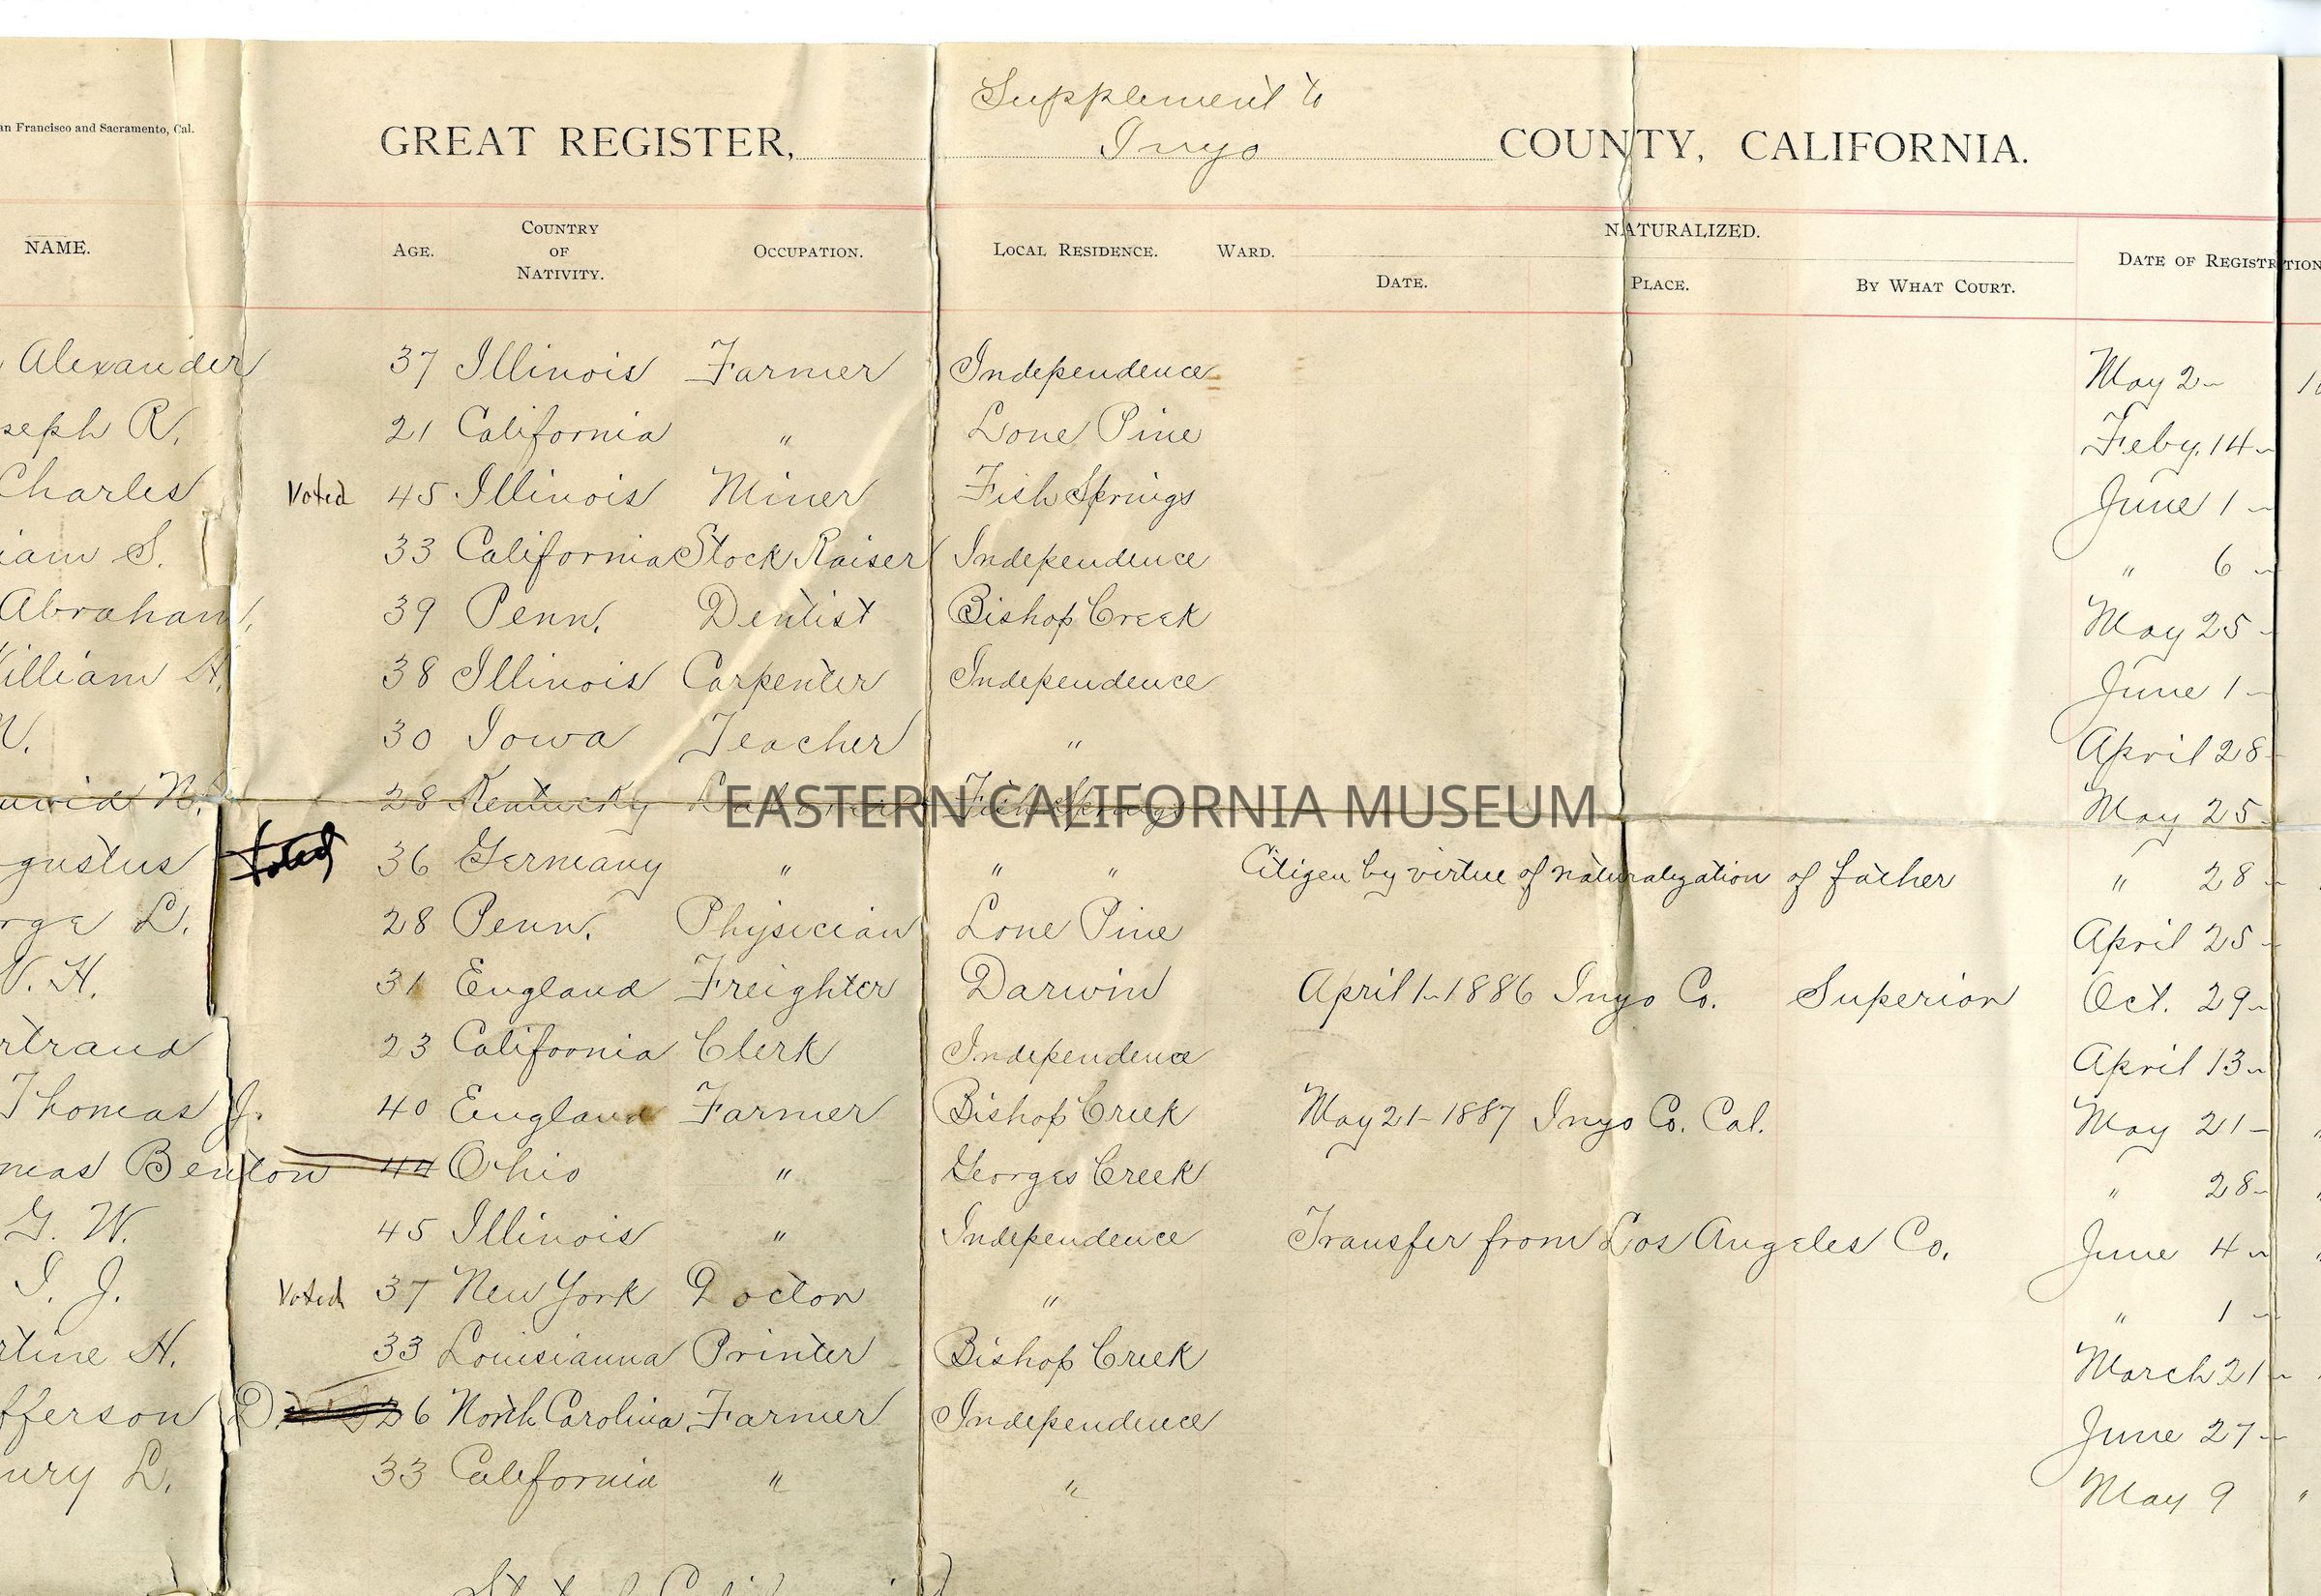 Supplement to
an Francisco and Sacramento, Cal.
GREAT REGISTER, Inyo COUNTY, CALIFORNIA.
NAME. AGE. COUNTRY OF NATIVITY. OCCUPATION. LOCAL RESIDENCE. WARD. NATURALIZED. DATE. PLACE. BY WHAT COURT. DATE OF REGISTRATION
Alexander 37 Illinois Farmer Independence May 2
seph R. 21 California " Lone Pine Feby. 14
Charles Voted 45 Illinois Miner Fish Springs June 1
iam S. 33 California Stock Raiser Independence " 6
Abraham 39 Penn. Dentist Bishop Creek May 25
illiam H. 38 Illinois Carpenter Independence June 1
W. 30 Iowa Teacher " April 28
avid N. 28 Kentucky Fish Springs May 25
EASTERN CALIFORNIA MUSEUM
gustus Voted 36 Germany " " " Citizen by virtue of naturalization of father " 28
rge L. 28 Penn. Physician Lone Pine April 25
H. 31 England Freighter Darwin April 1-1886 Inyo Co. Superior Oct. 29
rtrand 23 California Clerk Independence April 13
Thomas J. 40 England Farmer Bishop Creek May 21-1887 Inyo Co. Cal. May 21
mas Benton 44 Ohio " Georges Creek " 28
G. W. 45 Illinois " Independence Transfer from Los Angeles Co. June 4
I. J. Voted 37 New York Doctor " " 1
rtine H. 33 Louisianna Printer Bishop Creek March 21
fferson D. 26 North Carolina Farmer Independence June 27
nry L. 33 California " " May 9